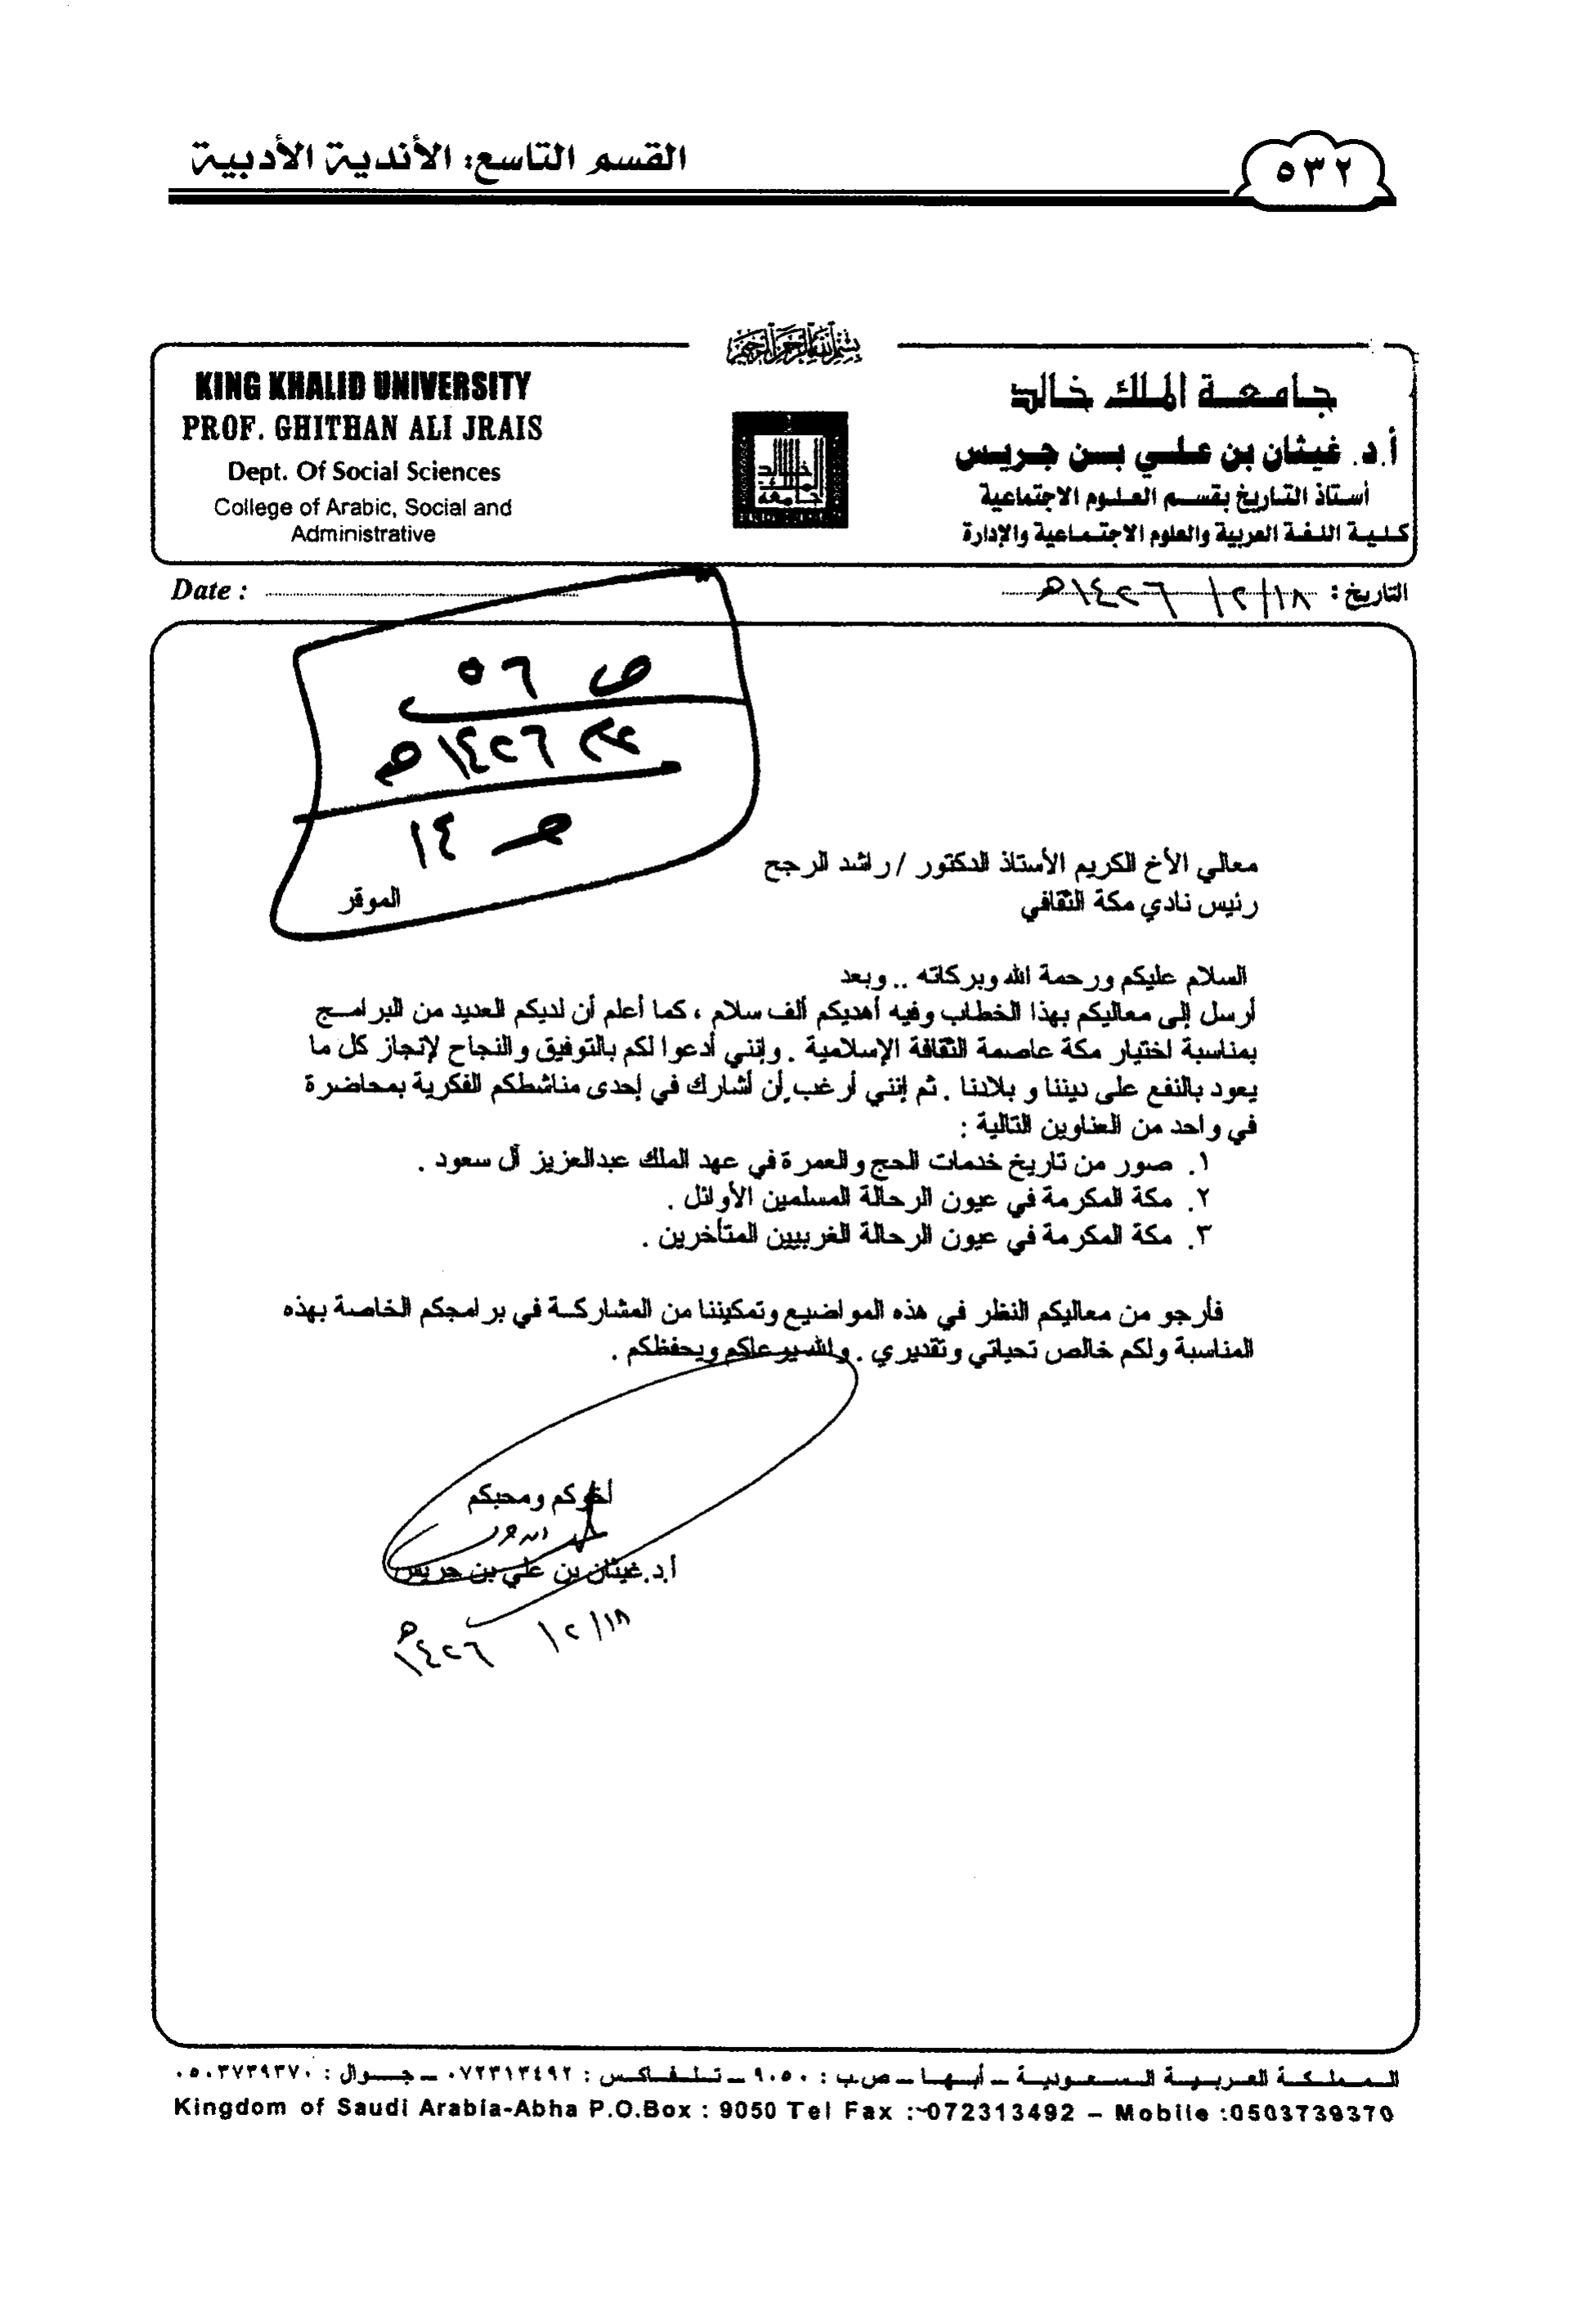 القسم التاسع: الأندية الأدبية
٥٣٢
بسم الله الرحمن الرحيم
KING KHALID UNIVERSITY
PROF. GHITHAN ALI JRAIS
Dept. Of Social Sciences
College of Arabic, Social and
Administrative
جامعة الملك خالد
أ.د. غيثان بن علي بن جريس
أستاذ التاريخ بقسم العلوم الاجتماعية
كلية اللغة العربية والعلوم الاجتماعية والإدارة
Date :
التاريخ : ١٨/٢/ ١٤٢٦هـ
ص ٥٦
عام ١٤٢٦هـ
حـ ١٤
معالي الأخ الكريم الأستاذ الدكتور /راشد الراجح
رئيس نادي مكة الثقافي الموقر
السلام عليكم ورحمة الله وبركاته .. وبعد
أرسل إلى معاليكم بهذا الخطاب وفيه أهديكم ألف سلام ، كما أعلم أن لديكم العديد من البرامج
بمناسبة اختيار مكة عاصمة الثقافة الإسلامية . وإنني أدعوا لكم بالتوفيق والنجاح لإنجاز كل ما
يعود بالنفع على ديننا و بلادنا . ثم إنني أرغب أن أشارك في إحدى مناشطكم الفكرية بمحاضرة
في واحد من العناوين التالية :
١. صور من تاريخ خدمات الحج والعمرة في عهد الملك عبدالعزيز آل سعود .
٢. مكة المكرمة في عيون الرحالة المسلمين الأوائل .
٣. مكة المكرمة في عيون الرحالة الغربيين المتأخرين .
فأرجو من معاليكم النظر في هذه المواضيع وتمكيننا من المشاركة في برامجكم الخاصة بهذه
المناسبة ولكم خالص تحياتي وتقديري . والله يرعاكم ويحفظكم .
أخوكم ومحبكم
أ.د.غيثان بن علي بن جريس
١٨/٢/ ١٤٢٦هـ
المملكة العربية السعودية – أبها – ص.ب : ٩٠٥٠ – تلفاكس : ٠٧٢٣١٣٤٩٢ – جوال : ٠٥٠٣٧٣٩٣٧٠
Kingdom of Saudi Arabia-Abha P.O.Box : 9050 Tel Fax :-072313492 – Mobile :0503739370